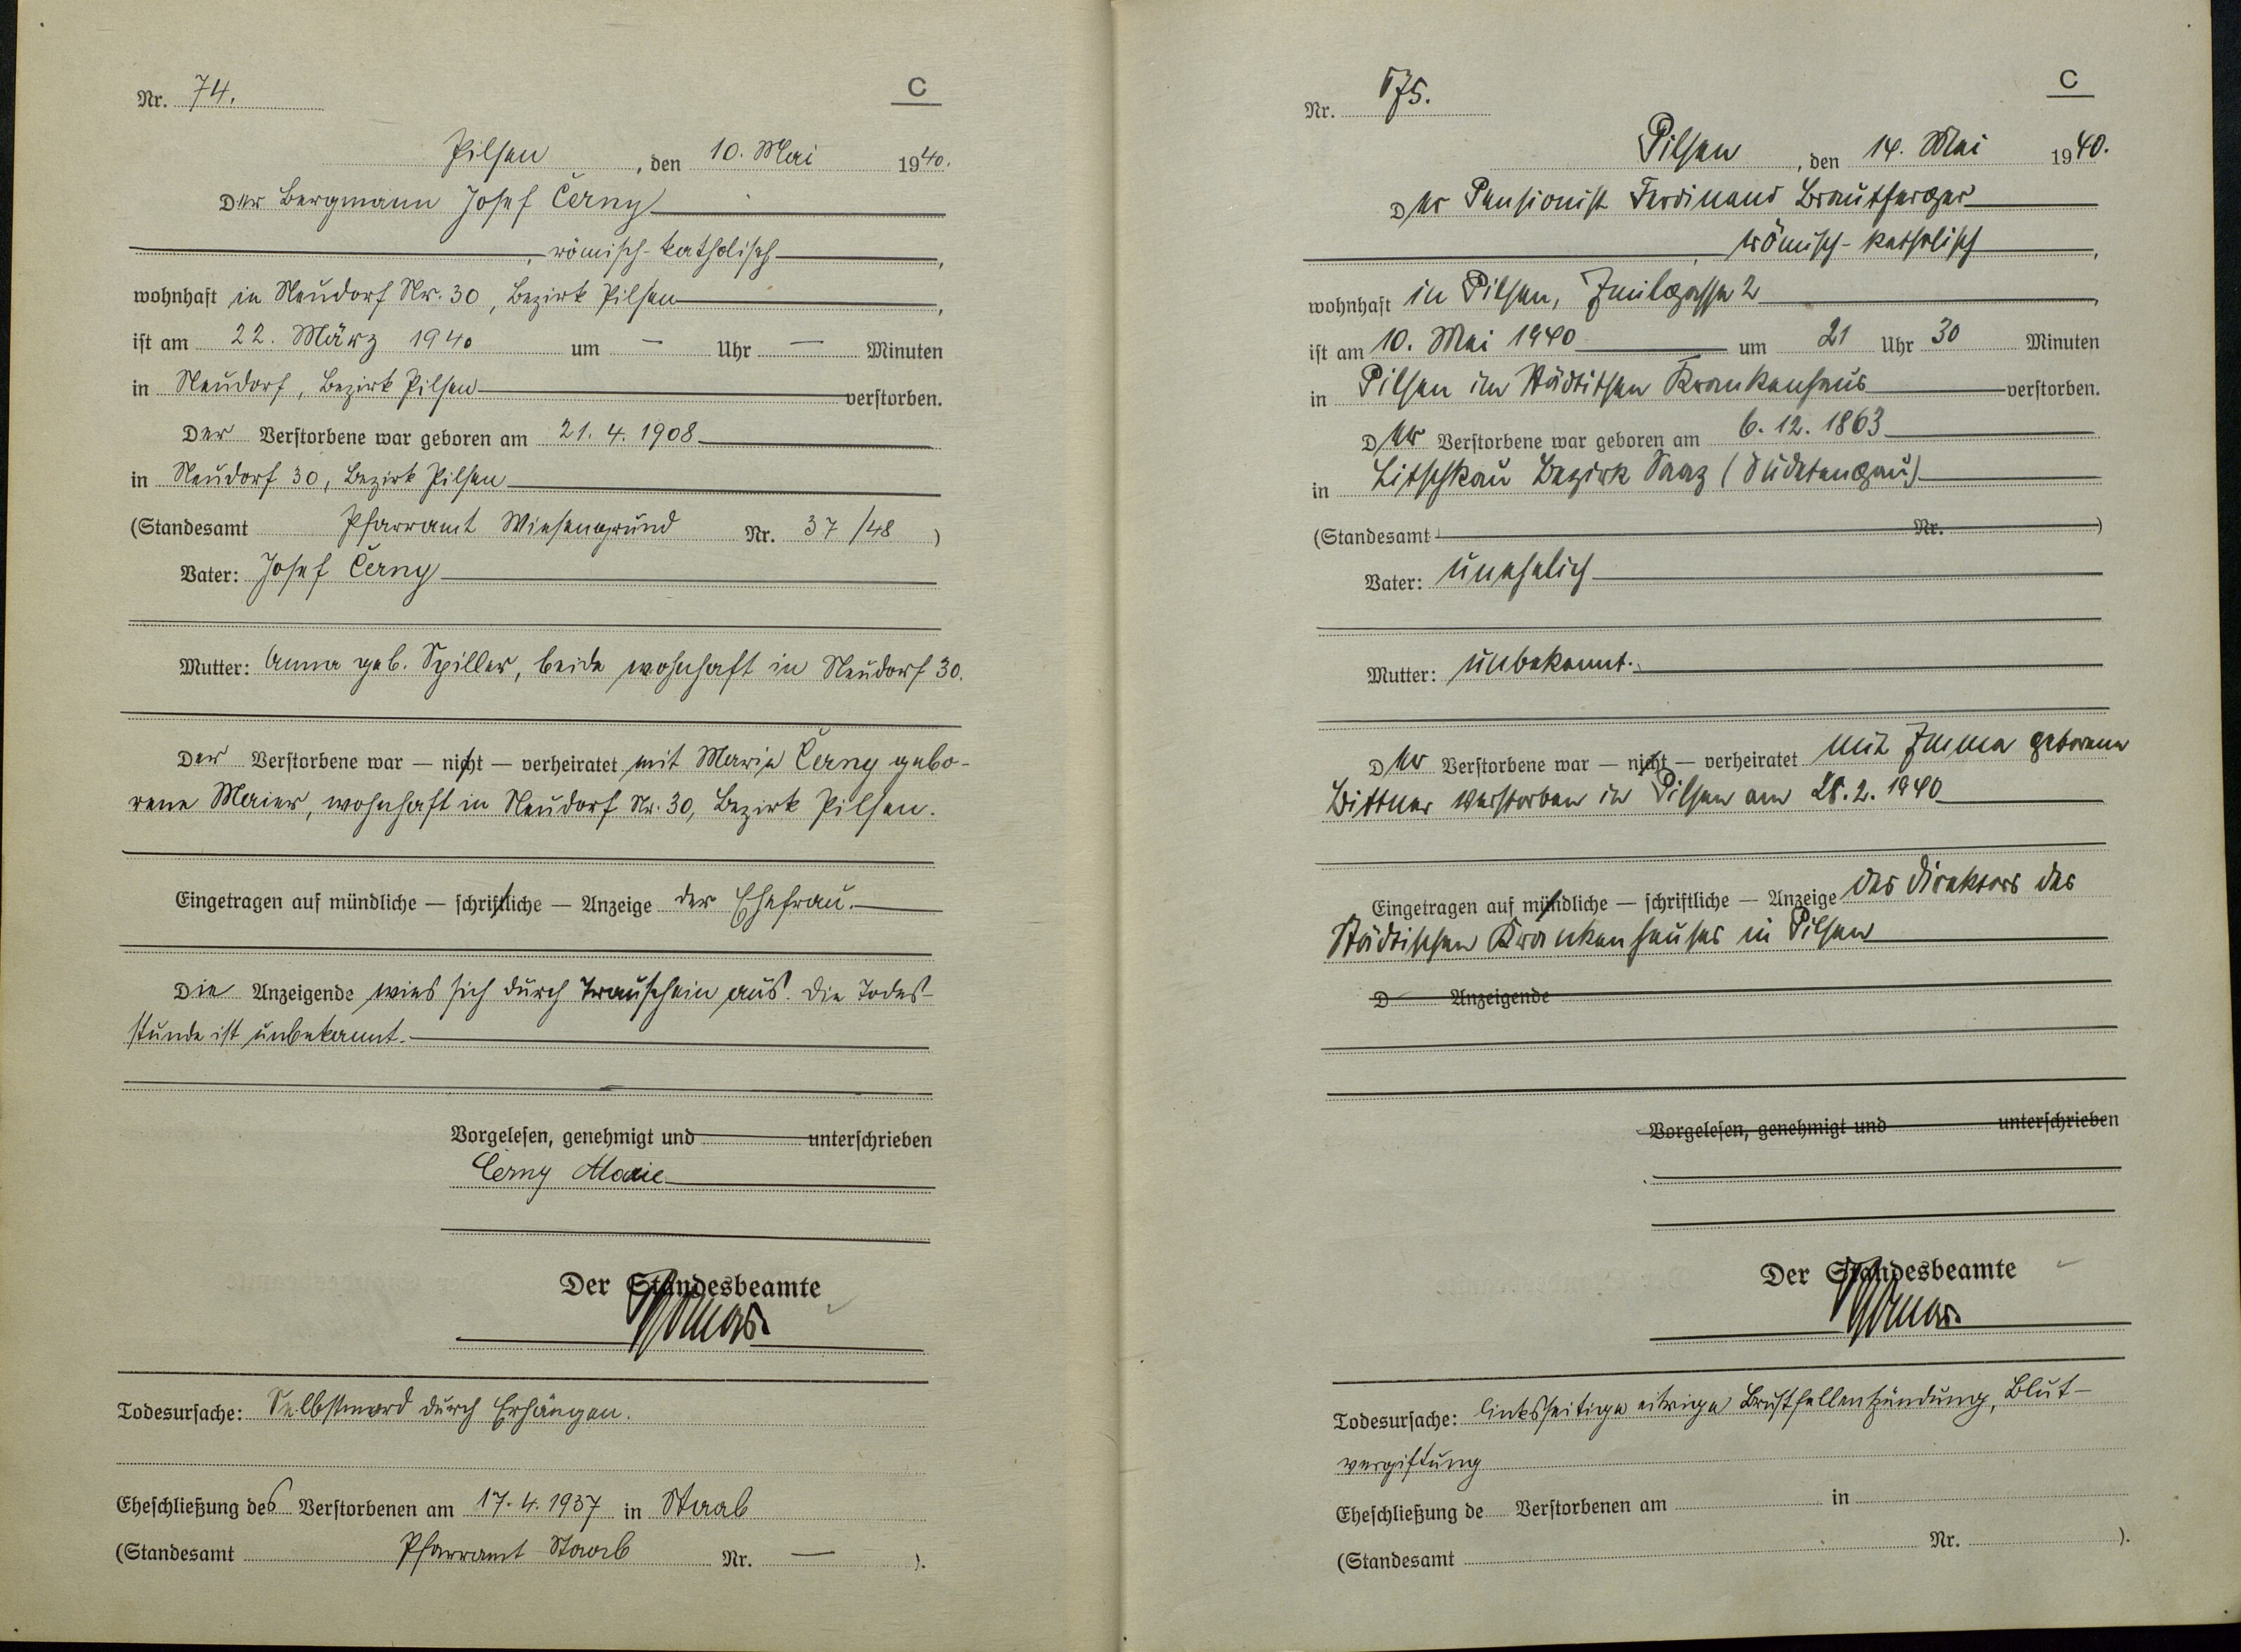 Nr. 74.
C
Pilsen, den 10. Mai 1940.
Der Bergmann Josef Černy
, römisch-katholisch,
wohnhaft in Neudorf Nr. 30, Bezirk Pilsen,
ist am 22. März 1940 um — Uhr — Minuten
in Neudorf, Bezirk Pilsen verstorben.
Der Verstorbene war geboren am 21. 4. 1908
in Neudorf 30, Bezirk Pilsen
(Standesamt Pfarramt Wiesengrund Nr. 37/48)
Vater: Josef Černy
Mutter: Anna geb. Spiller, beide wohnhaft in Neudorf 30.
Der Verstorbene war — nicht — verheiratet mit Marie Černy gebo-
rene Maier, wohnhaft in Neudorf Nr. 30, Bezirk Pilsen.
Eingetragen auf mündliche — schriftliche — Anzeige der Ehefrau.
Die Anzeigende wies sich durch Trauschein aus. Die Todes-
stunde ist unbekannt.
Vorgelesen, genehmigt und unterschrieben
Černy Marie
Der Standesbeamte
Todesursache: Selbstmord durch Erhängen.
Eheschließung des Verstorbenen am 17. 4. 1937 in Staab
(Standesamt Pfarramt Staab Nr. — ).
Nr. 75.
C
Pilsen, den 14. Mai 1940.
Der Pensionist Ferdinand
, römisch-katholisch,
wohnhaft in Pilsen, 2,
ist am 10. Mai 1940 um 21 Uhr 30 Minuten
in Pilsen im Städtischen Krankenhaus verstorben.
Der Verstorbene war geboren am 6. 12. 1863
in Litschkau Bezirk Saaz (Sudetengau)
(Standesamt Nr. )
Vater: unehelich
Mutter: unbekannt.
Der Verstorbene war — nicht — verheiratet mit Emma geborene
Bittner verstorben in Pilsen am 28. 2. 1940
Eingetragen auf mündliche — schriftliche — Anzeige des Direktors des
Städtischen Krankenhauses in Pilsen
D Anzeigende
Vorgelesen, genehmigt und unterschrieben
Der Standesbeamte
Todesursache: linksseitige eitrige Brustfellentzündung, Blut-
vergiftung
Eheschließung de Verstorbenen am in
(Standesamt Nr. ).